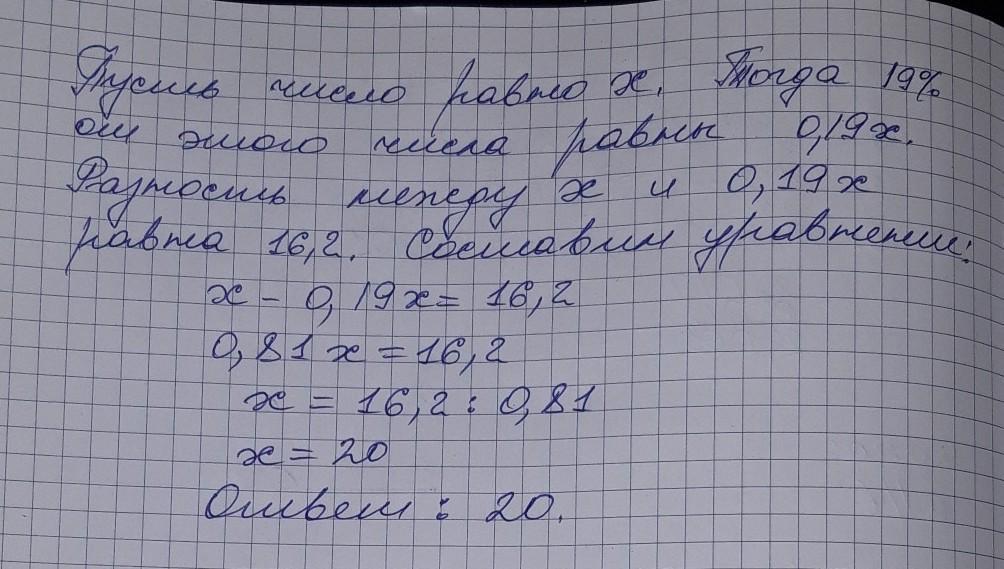 Пусть число равно x. Тогда 19%
от этого числа равны 0,19x.
Разность между x и 0,19x
равна 16,2. Составим уравнение:
x - 0,19x = 16,2
0,81x = 16,2
x = 16,2 : 0,81
x = 20
Ответ : 20.